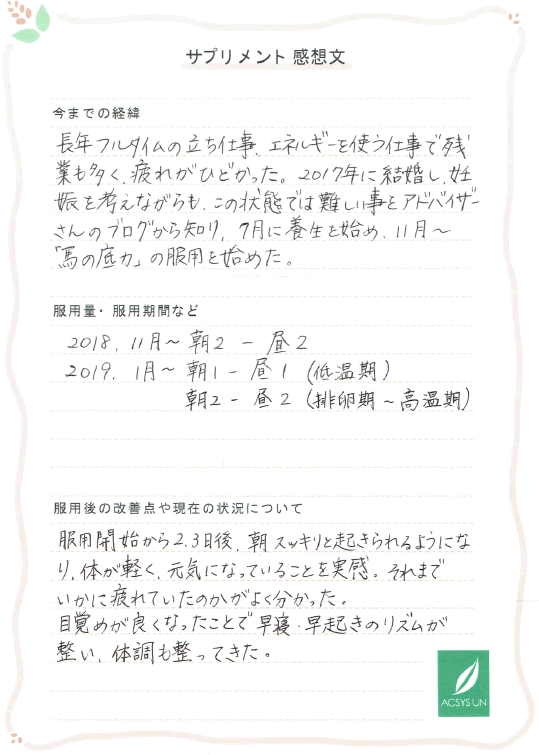 サプリメント 感想文
今までの経緯
長年フルタイムの立ち仕事、エネルギーを使う仕事で残
業も多く、疲れがひどかった。2017年に結婚し、妊
娠を考えながらも、この状態では難しい事をアドバイザー
さんのブログから知り、7月に養生を始め、11月～
「馬の底力」の服用を始めた。
服用量・服用期間など
2018.11月～ 朝2 － 昼2
2019. 1月～ 朝1－昼1 (低温期)
朝2－昼2 (排卵期～高温期)
服用後の改善点や現在の状況について
服用開始から2.3日後、朝スッキリと起きられるようにな
り、体が軽く、元気になっていることを実感。それまで
いかに疲れていたのかがよく分かった。
目覚めが良くなったことで早寝・早起きのリズムが
整い、体調も整ってきた。
ACSYSUN